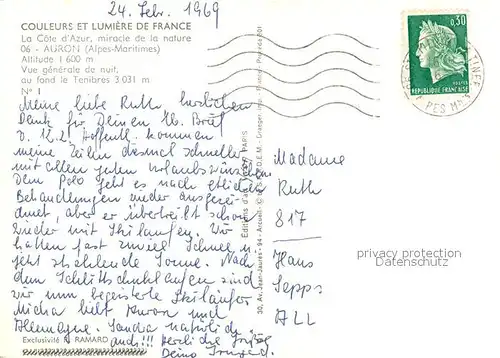 24. Febr. 1969
COULEURS ET LUMIÈRE DE FRANCE
La Côte d'Azur, miracle de la nature
06 - AURON (Alpes-Maritimes)
Altitude 1 600 m
Vue générale de nuit,
au fond le Tenibres 3 031 m
N° 1
0,30
POSTES
REPUBLIQUE FRANÇAISE
Meine liebe Ruth, herzlichen
Dank für Deinen lb. Brief
v. 12.2. Hoffentl. kommen
meine Zeilen diesmal schneller
mit allen guten Urlaubswünschen
Dem Polo geht es nach etlichen
Behandlungen wieder ausgezeich-
net, aber er übertreibt schon
wieder mit Skilaufen. Wir
hatten fast zuviel Schnee u.
jetzt strahlende Sonne. Nach
dem Schlittschuhlaufen sind
wir nun begeisterte Skiläufer
Micha lebt zwischen und
Allemagne. Sandra natürlich
auch!!! Herzliche Grüße
Deine
Editions d'art PARIS
30, Av. Jean-Jaurès, 94 - Arcueil
Madame
Ruth
817
Hans
Sepps
ALL
privacy protection
Datenschutz
Exclusivité R. RAMARD